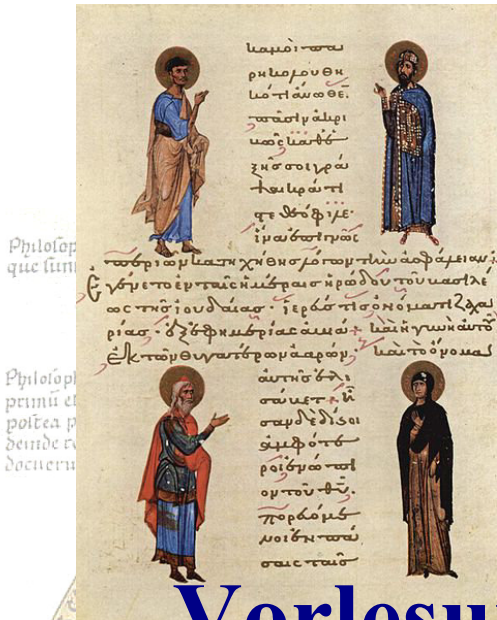 καμοὶ πα
ρηκολουθη
κότι ἄνωθε
πᾶσιν ἀκρι
βῶς καθε
ξῆς σοι γρά
ψαι κράτι
στε θεόφιλε·
ἵνα ἐπιγνῶς
περὶ ὧν κατηχήθης λόγων τὴν ἀσφάλειαν:
Ἐγένετο ἐν ταῖς ἡμέραις ἡρώδου τοῦ βασιλέ
ως τῆς ἰουδαίας· ἱερεύς τις ὀνόματι ζαχα
ρίας· ἐξ ἐφημερίας ἀβιά· καὶ ἡ γυνὴ αὐτοῦ
ἐκ τῶν θυγατέρων ἀαρών· καὶ τὸ ὄνομα
αὐτῆς ἐλι
σάβετ· ἦ
σαν δὲ δίκαιοι
ἀμφότε
ροι ἐνώπι
ον τοῦ θυ·
πορευόμε
νοι ἐν πά
σαις ταῖς
Philosop
que sunt
Philosoph
primu et
postea p
deinde
docueru
Vorlesu